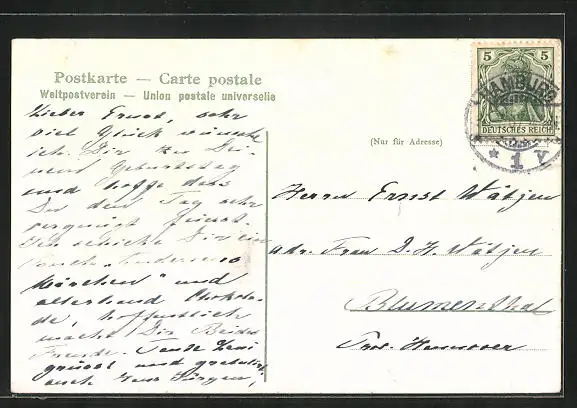 Postkarte — Carte postale
Weltpostverein — Union postale universelle
Lieber Ernst, sehr
viel Glück wünsche
ich Dir zu Dei-
nem Geburtstag
und hoffe dass
Du den Tag sehr
vergnügt feierst.
Ich schicke Dir ein
märchen" und
allerhand Chokola-
de, hoffentlich
macht Dir Beides
Freude. Tante
grüsst und gratulirt
auch. Jürgen,
(Nur für Adresse)
Herrn Ernst Wätjen
adr. Frau D. H. Wätjen
Blumenthal
Prov. Hannover
5 5
DEUTSCHES REICH
HAMBURG
* 1 V